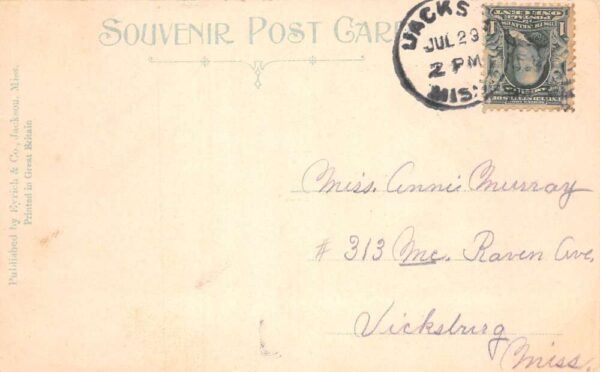 SOUVENIR POST CARD
JACKS
JUL 29
2 PM
MISS
Published by Eyrich & Co., Jackson, Miss.
Printed in Great Britain
Miss. Annie Murray
# 313 Mc. Raven Ave.
Vicksburg
Miss.